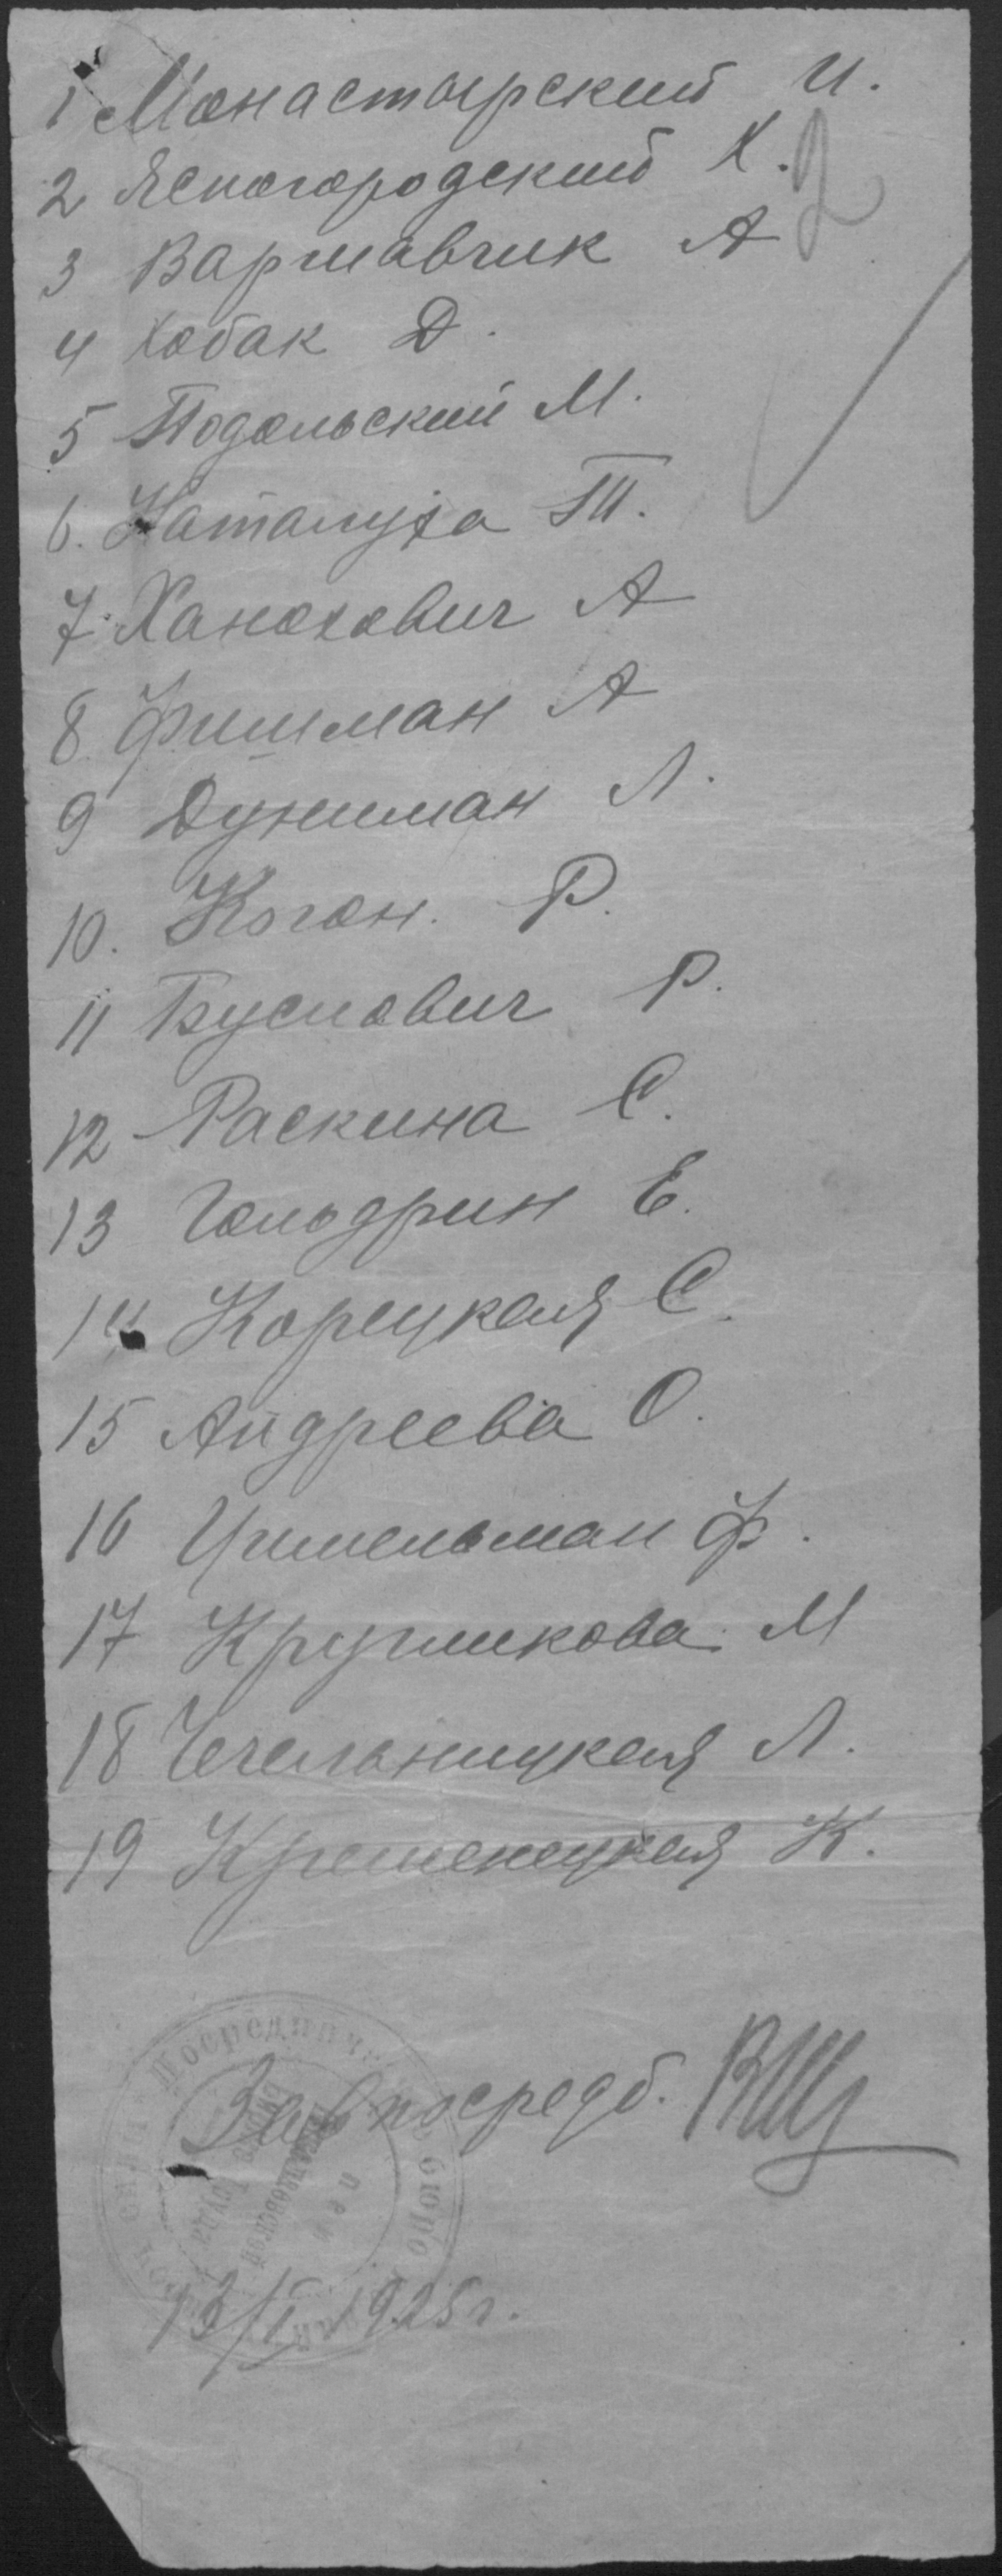 1 Монастырский И.
2 Ясногородский Х.
2
3 Варшавчик А
4 Хобак Д.
5 Подольский М.
6. Наталуха Т.
7 Ханохович А
8 Фишман А
9 Дунишман Л.
10. Коган. Р.
11 Буслович Р.
12 Раскина С.
13 Гольдрин Е.
14 Корецкая С.
15 Андреева О.
16 Цимельман Ф.
17 Кругликова М
18 Чечельницкая Л.
19 Кременецкая К.
Зав посредб.
Посреднич бюро
13/I 1925 г.